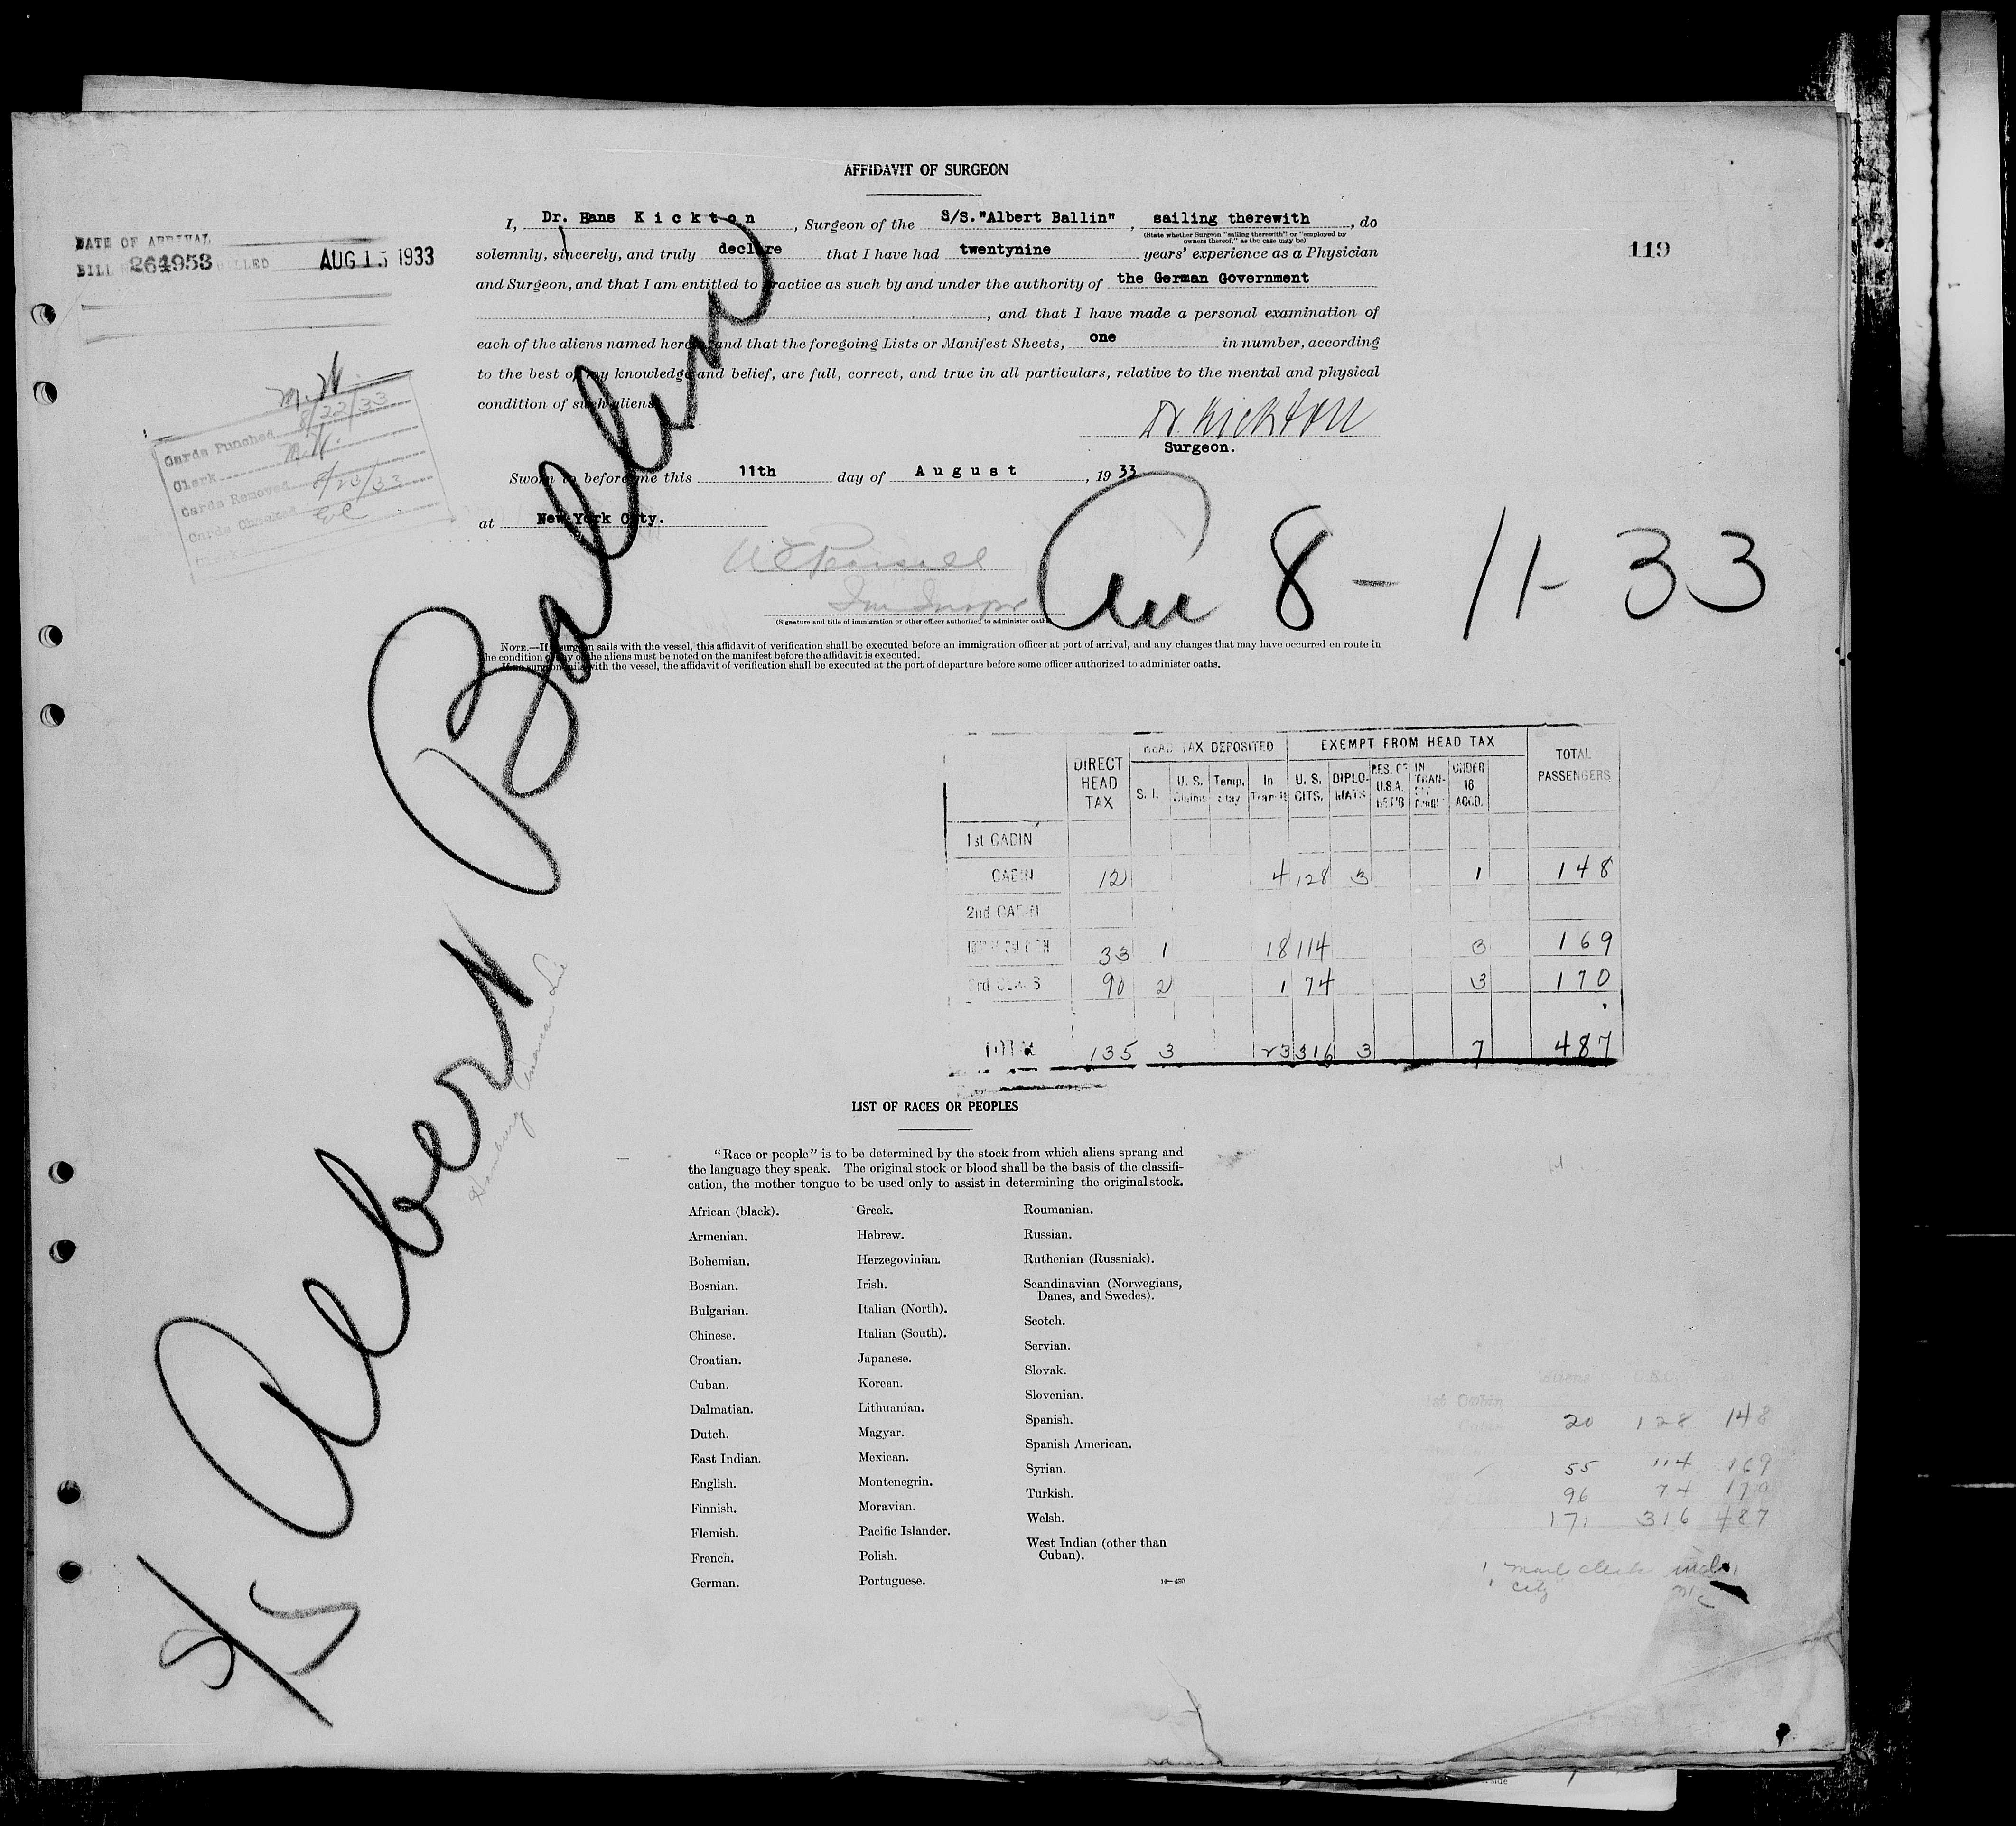 AFFIDAVIT OF SURGEON
I, Dr. Hans Kickton, Surgeon of the S/S."Albert Ballin", sailing therewith, do
(State whether Surgeon "sailing therewith" or "employed by
owners thereof," as the case may be)
solemnly, sincerely, and truly declare that I have had twentynine years' experience as a Physician
and Surgeon, and that I am entitled to practice as such by and under the authority of the German Government
, and that I have made a personal examination of
each of the aliens named herein, and that the foregoing Lists or Manifest Sheets, one in number, according
to the best of my knowledge and belief, are full, correct, and true in all particulars, relative to the mental and physical
condition of such aliens.
Dr. Kickton
Surgeon.
Sworn to before me this 11th day of August, 1933
at New York City.
(Signature and title of immigration or other officer authorized to administer oaths
NOTE.—If surgeon sails with the vessel, this affidavit of verification shall be executed before an immigration officer at port of arrival, and any changes that may have occurred en route in
the condition of any of the aliens must be noted on the manifest before the affidavit is executed.
If surgeon sails with the vessel, the affidavit of verification shall be executed at the port of departure before some officer authorized to administer oaths.
DATE OF ARRIVAL
BILL 264953 BILLED AUG 15 1933
119
Cards Punched 8/22/33
Clerk M.W.
Cards Removed 8/23/33
Cards Checked
8-11-33
S/S Albert Ballin
Hamburg American Line
DIRECT HEAD TAX
HEAD TAX DEPOSITED
EXEMPT FROM HEAD TAX
TOTAL PASSENGERS
S. I. U. S. Claims Temp. Stay In Transit U. S. CITS. DIPLO-MATS RES. OF U.S.A. RET'G IN TRAN- UNDER 16 ACCD.
1st CABIN
CABIN 12 4 128 3 1 148
2nd CABIN
33 1 18 114 3 169
3rd CLASS 90 2 1 74 3 170
TOTAL 135 3 23 316 3 7 487
LIST OF RACES OR PEOPLES
"Race or people" is to be determined by the stock from which aliens sprang and
the language they speak. The original stock or blood shall be the basis of the classifi-
cation, the mother tongue to be used only to assist in determining the original stock.
African (black).
Armenian.
Bohemian.
Bosnian.
Bulgarian.
Chinese.
Croatian.
Cuban.
Dalmatian.
Dutch.
East Indian.
English.
Finnish.
Flemish.
French.
German.
Greek.
Hebrew.
Herzegovinian.
Irish.
Italian (North).
Italian (South).
Japanese.
Korean.
Lithuanian.
Magyar.
Mexican.
Montenegrin.
Moravian.
Pacific Islander.
Polish.
Portuguese.
Roumanian.
Russian.
Ruthenian (Russniak).
Scandinavian (Norwegians,
Danes, and Swedes).
Scotch.
Servian.
Slovak.
Slovenian.
Spanish.
Spanish American.
Syrian.
Turkish.
Welsh.
West Indian (other than
Cuban).
Aliens U.S.C.
1st Cabin
Cabin 20 128 148
55 114 169
96 74 170
171 316 487
1 mail clerk incl.
1 city